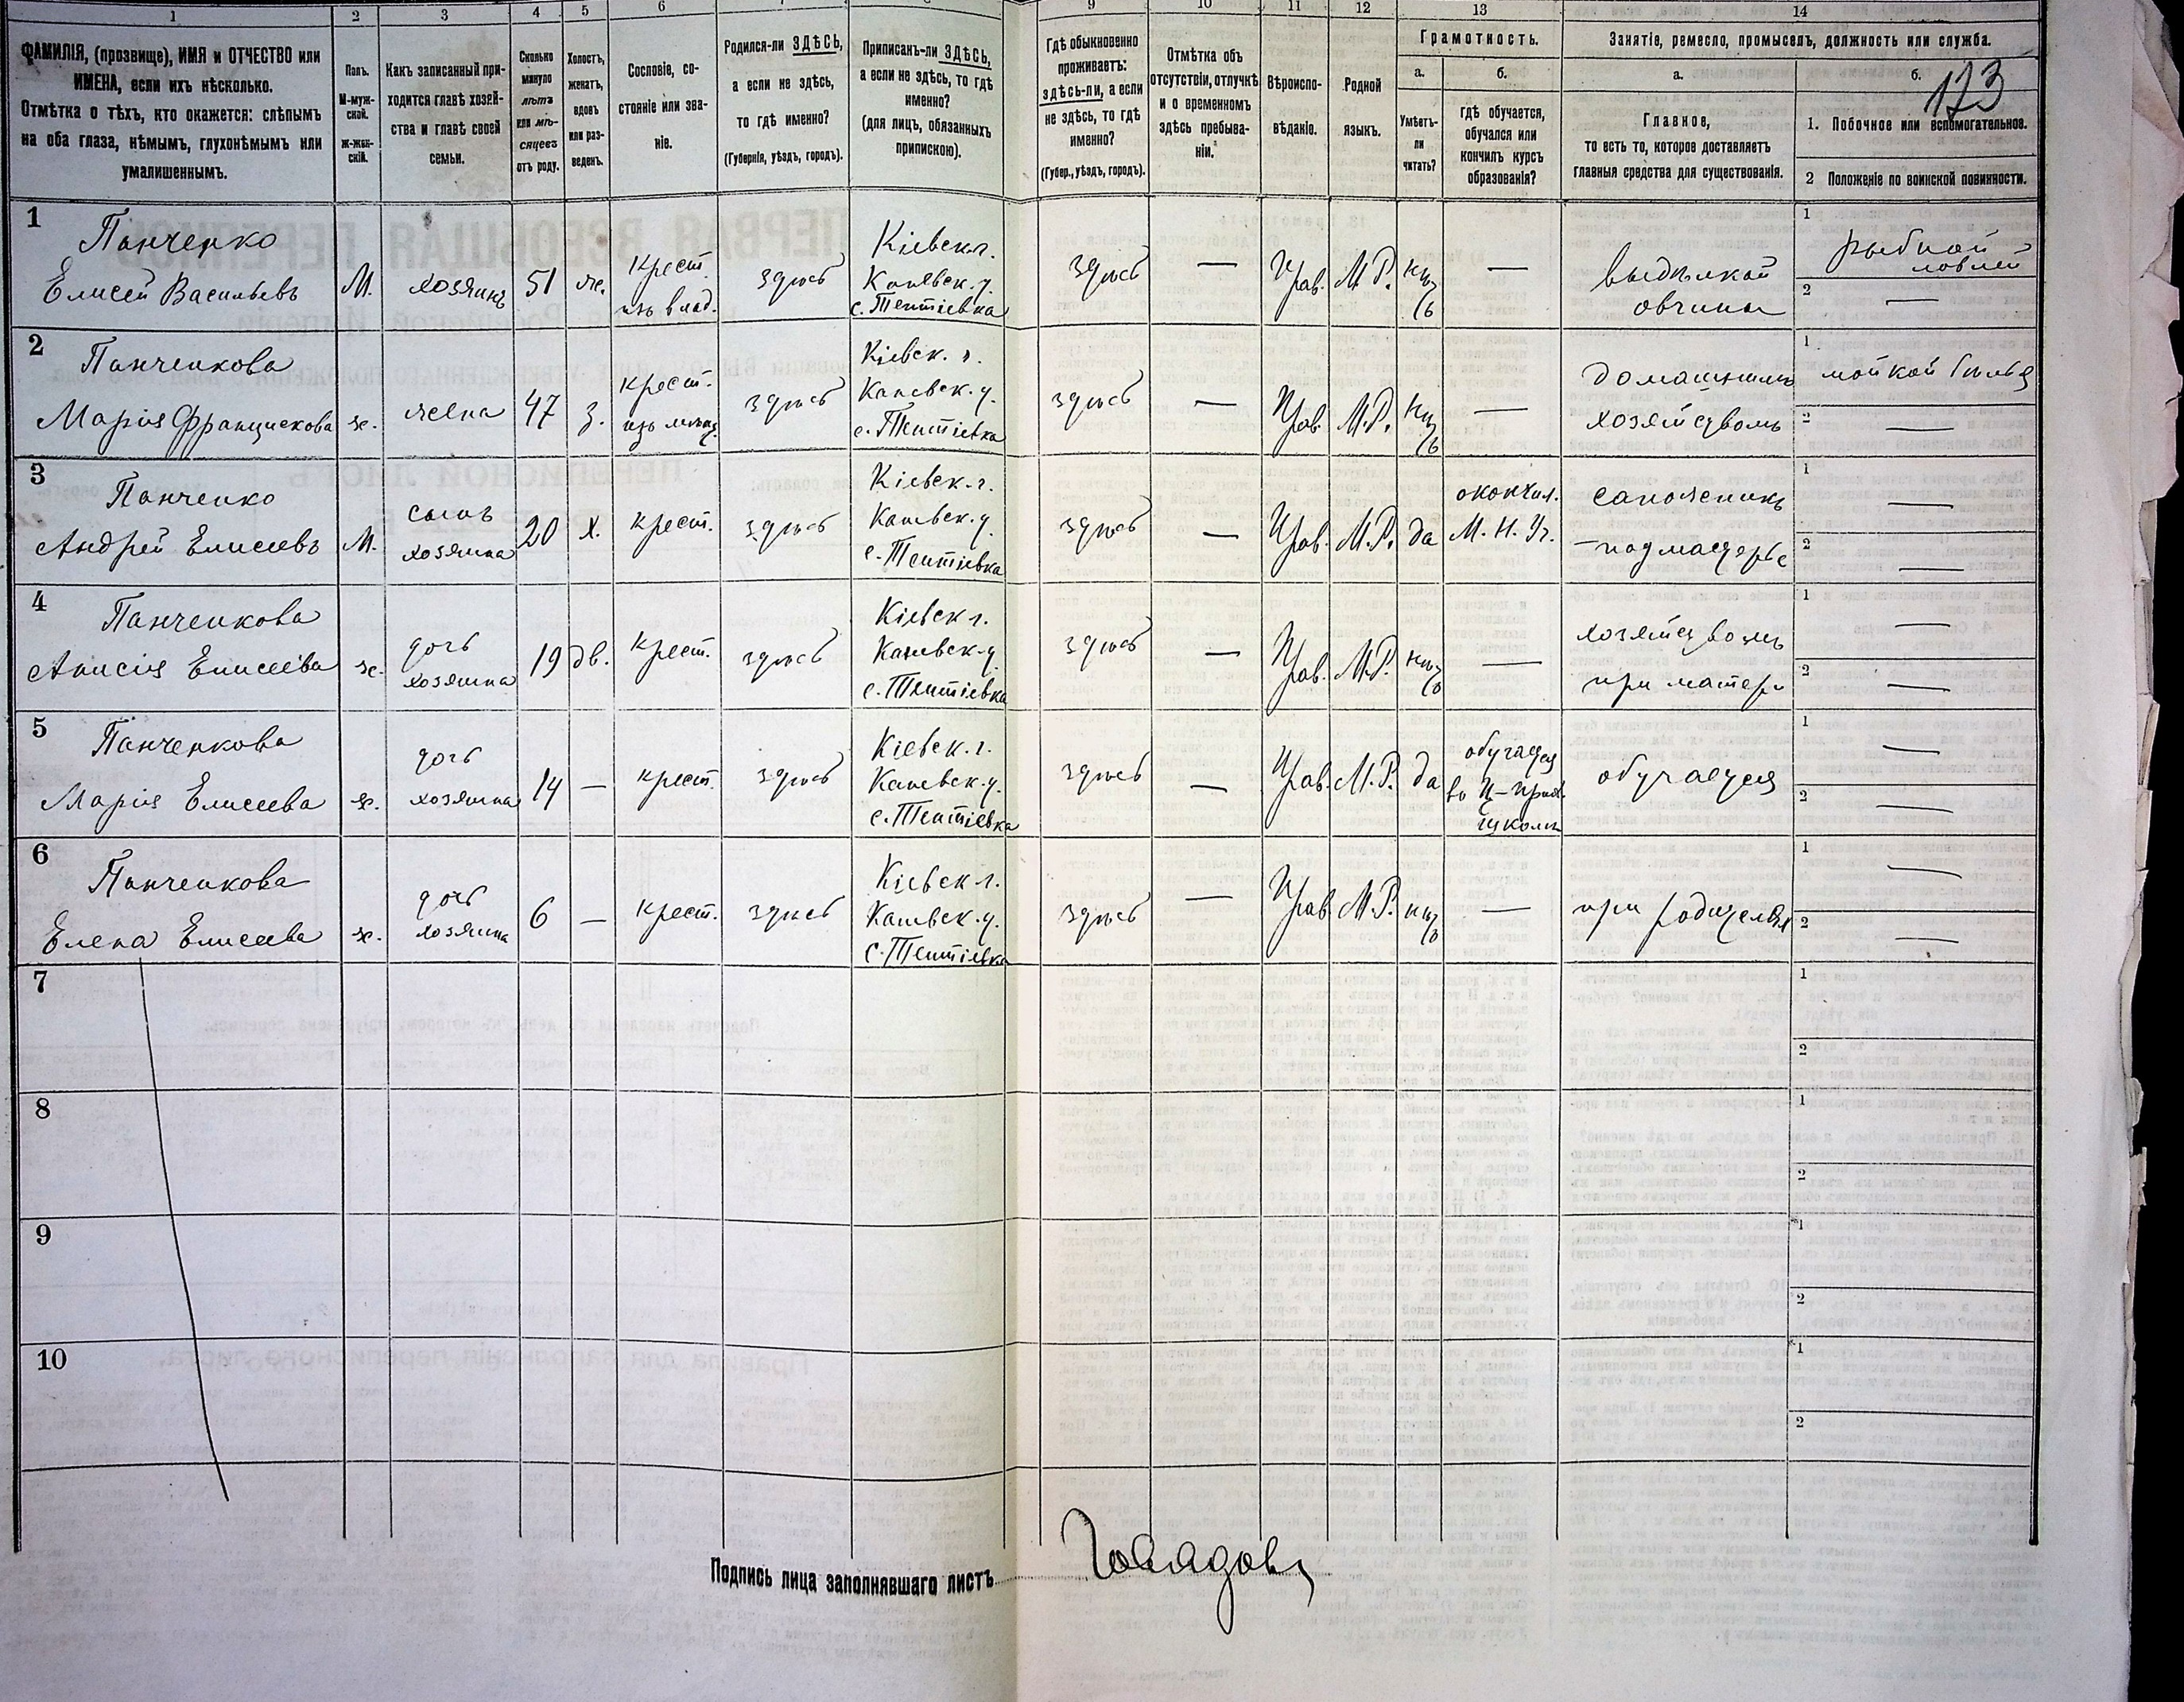 1 2 3 4 5 6 7 8 9 10 11 12 13 14
ФАМИЛІЯ, (прозвище), ИМЯ и ОТЧЕСТВО или
ИМЕНА, если ихъ нѣсколько.
Отмѣтка о тѣхъ, кто окажется: слѣпымъ
на оба глаза, нѣмымъ, глухонѣмымъ или
умалишеннымъ.
Полъ.
М-муж-
ской.
Ж-жен-
скій.
Какъ записанный при-
ходится главѣ хозяй-
ства и главѣ своей
семьи.
Сколько
минуло
лѣтъ
или мѣ-
сяцевъ
отъ роду.
Холостъ,
женатъ,
вдовъ
или раз-
веденъ.
Сословіе, со-
стояніе или зва-
ніе.
Родился-ли ЗДѢСЬ,
а если не здѣсь,
то гдѣ именно?
(Губернія, уѣздъ, городъ).
Приписанъ-ли ЗДѢСЬ,
а если не здѣсь, то гдѣ
именно?
(для лицъ, обязанныхъ
припискою).
Гдѣ обыкновенно
проживаетъ:
здѣсь-ли, а если
не здѣсь, то гдѣ
именно?
(Губер., уѣздъ, городъ).
Отмѣтка объ
отсутствіи, отлучкѣ
и о временномъ
здѣсь пребыва-
ніи.
Вѣроиспо-
вѣданіе.
Родной
языкъ.
Грамотность.
а.
Умѣетъ-
ли
читать?
б.
гдѣ обучается,
обучался или
кончилъ курсъ
образованія?
Занятіе, ремесло, промыселъ, должность или служба.
а.
Главное,
то есть то, которое доставляетъ
главныя средства для существованія.
б.
173
1. Побочное или вспомогательное.
2 Положеніе по воинской повинности.
1
Панченко
Елисей Васильевъ
М.
хозяинъ
51
ж.
крест.
изъ влад.
здѣсь
Кіевск. г.
Каневск. у.
с. Тептіевка
здѣсь
—
Прав.
М.Р.
нѣтъ
—
выдѣлкой
овчины
1 рыбной
ловлей
2 —
2
Панченкова
Марія Францискова
ж.
жена
47
з.
крест.
изъ
здѣсь
Кіевск. г.
Каневск. у.
с. Тептіевка
здѣсь
—
Прав.
М.Р.
нѣтъ
—
домашнимъ
хозяйствомъ
1 мойкой бѣлья
2 —
3
Панченко
Андрей Елисеевъ
М.
сынъ
хозяина
20
х.
крест.
здѣсь
Кіевск. г.
Каневск. у.
с. Тептіевка
здѣсь
—
Прав.
М.Р.
да
окончил.
М. Н. Уч.
сапожникъ
—подмастерье
1 —
2 —
4
Панченкова
Анисія Елисеева
ж.
дочь
хозяина
19
дв.
крест.
здѣсь
Кіевск г.
Каневск. у.
с. Тептіевка
здѣсь
—
Прав.
М.Р.
нѣтъ
—
хозяйствомъ
при матери
1 —
2 —
5
Панченкова
Марія Елисеева
ж.
дочь
хозяина
14
—
крест.
здѣсь
Кіевск. г.
Каневск. у.
с. Тептіевка
здѣсь
—
Прав.
М.Р.
да
обучается
въ Ц-прих.
школѣ
обучается
1 —
2 —
6
Панченкова
Елена Елисеева
ж.
дочь
хозяина
6
—
крест.
здѣсь
Кіевск г.
Каневск. у.
с. Тептіевка
здѣсь
—
Прав
М.Р.
нѣтъ
—
при родителяхъ
1 —
2 —
7
1
2
8
1
2
9
1
2
10
1
2
Подпись лица заполнявшаго листъ